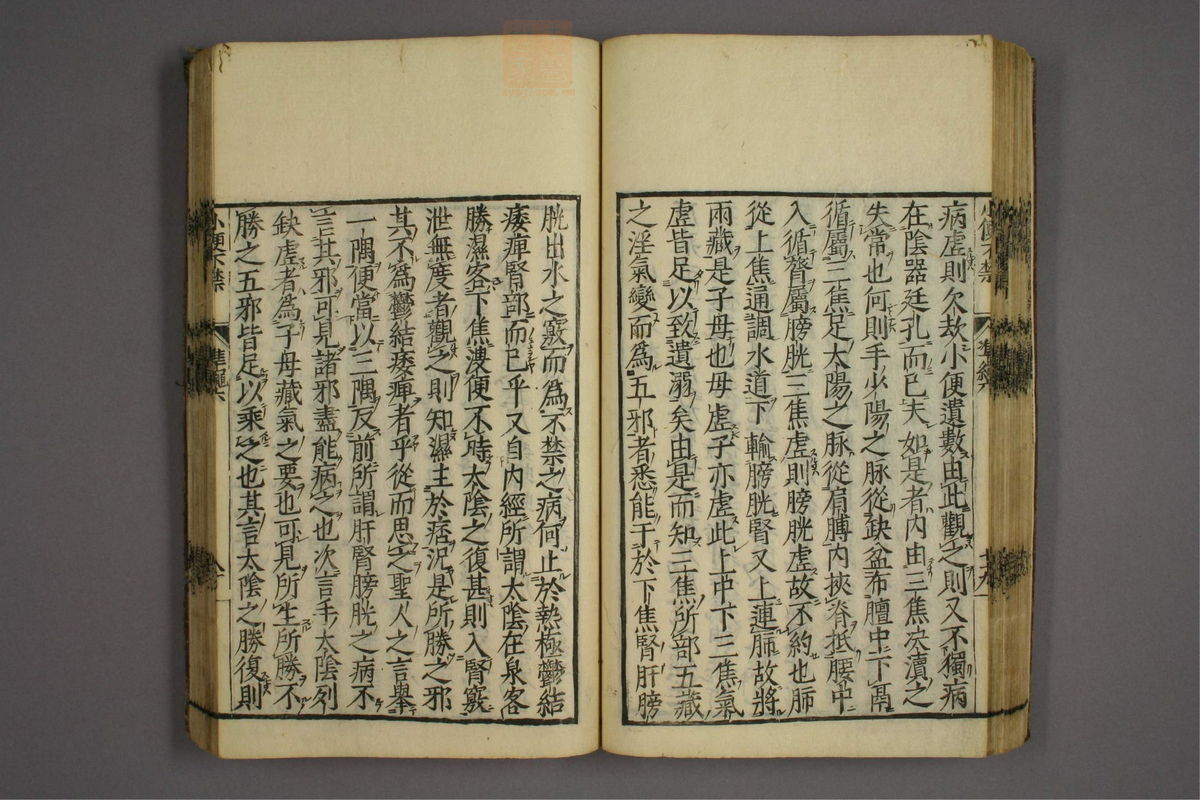 病虛則欠欬小便遺數由此觀之則又不獨病
在陰器廷孔而已夫如是者内由三焦決瀆之
失常也何則手少陽之脉從缺盆布膻中下鬲
循屬三焦足太陽之脉從肩膊内挾脊抵腰中
入循膂屬膀胱三焦虛則膀胱虛故不約也肺
從上焦通調水道下輸膀胱腎又上連肺故將
兩藏是子母也母虛子亦虛此上中下三焦氣
虛皆足以致遺溺矣由是而知三焦所部五藏
之淫氣變而爲五邪者悉能干於下焦腎肝膀
胱出水之竅而爲不禁之病何止於熱極鬱結
痿痺腎部而已乎又自内經所謂太陰在泉客
勝濕客下焦溲便不時太陰之復甚則入腎竅
泄無度者觀之則知濕土於痞況是所勝之邪
其不爲鬱結痿痺者乎從而思之聖人之言舉
一隅便當以三隅反前所謂肝腎膀胱之病不
言其邪可見諸邪盡能病之也次言手太陰列
缺虛者爲子母藏氣之要也可見所生所勝不
勝之五邪皆足以乘之也其言太陰之勝復則
小便不禁